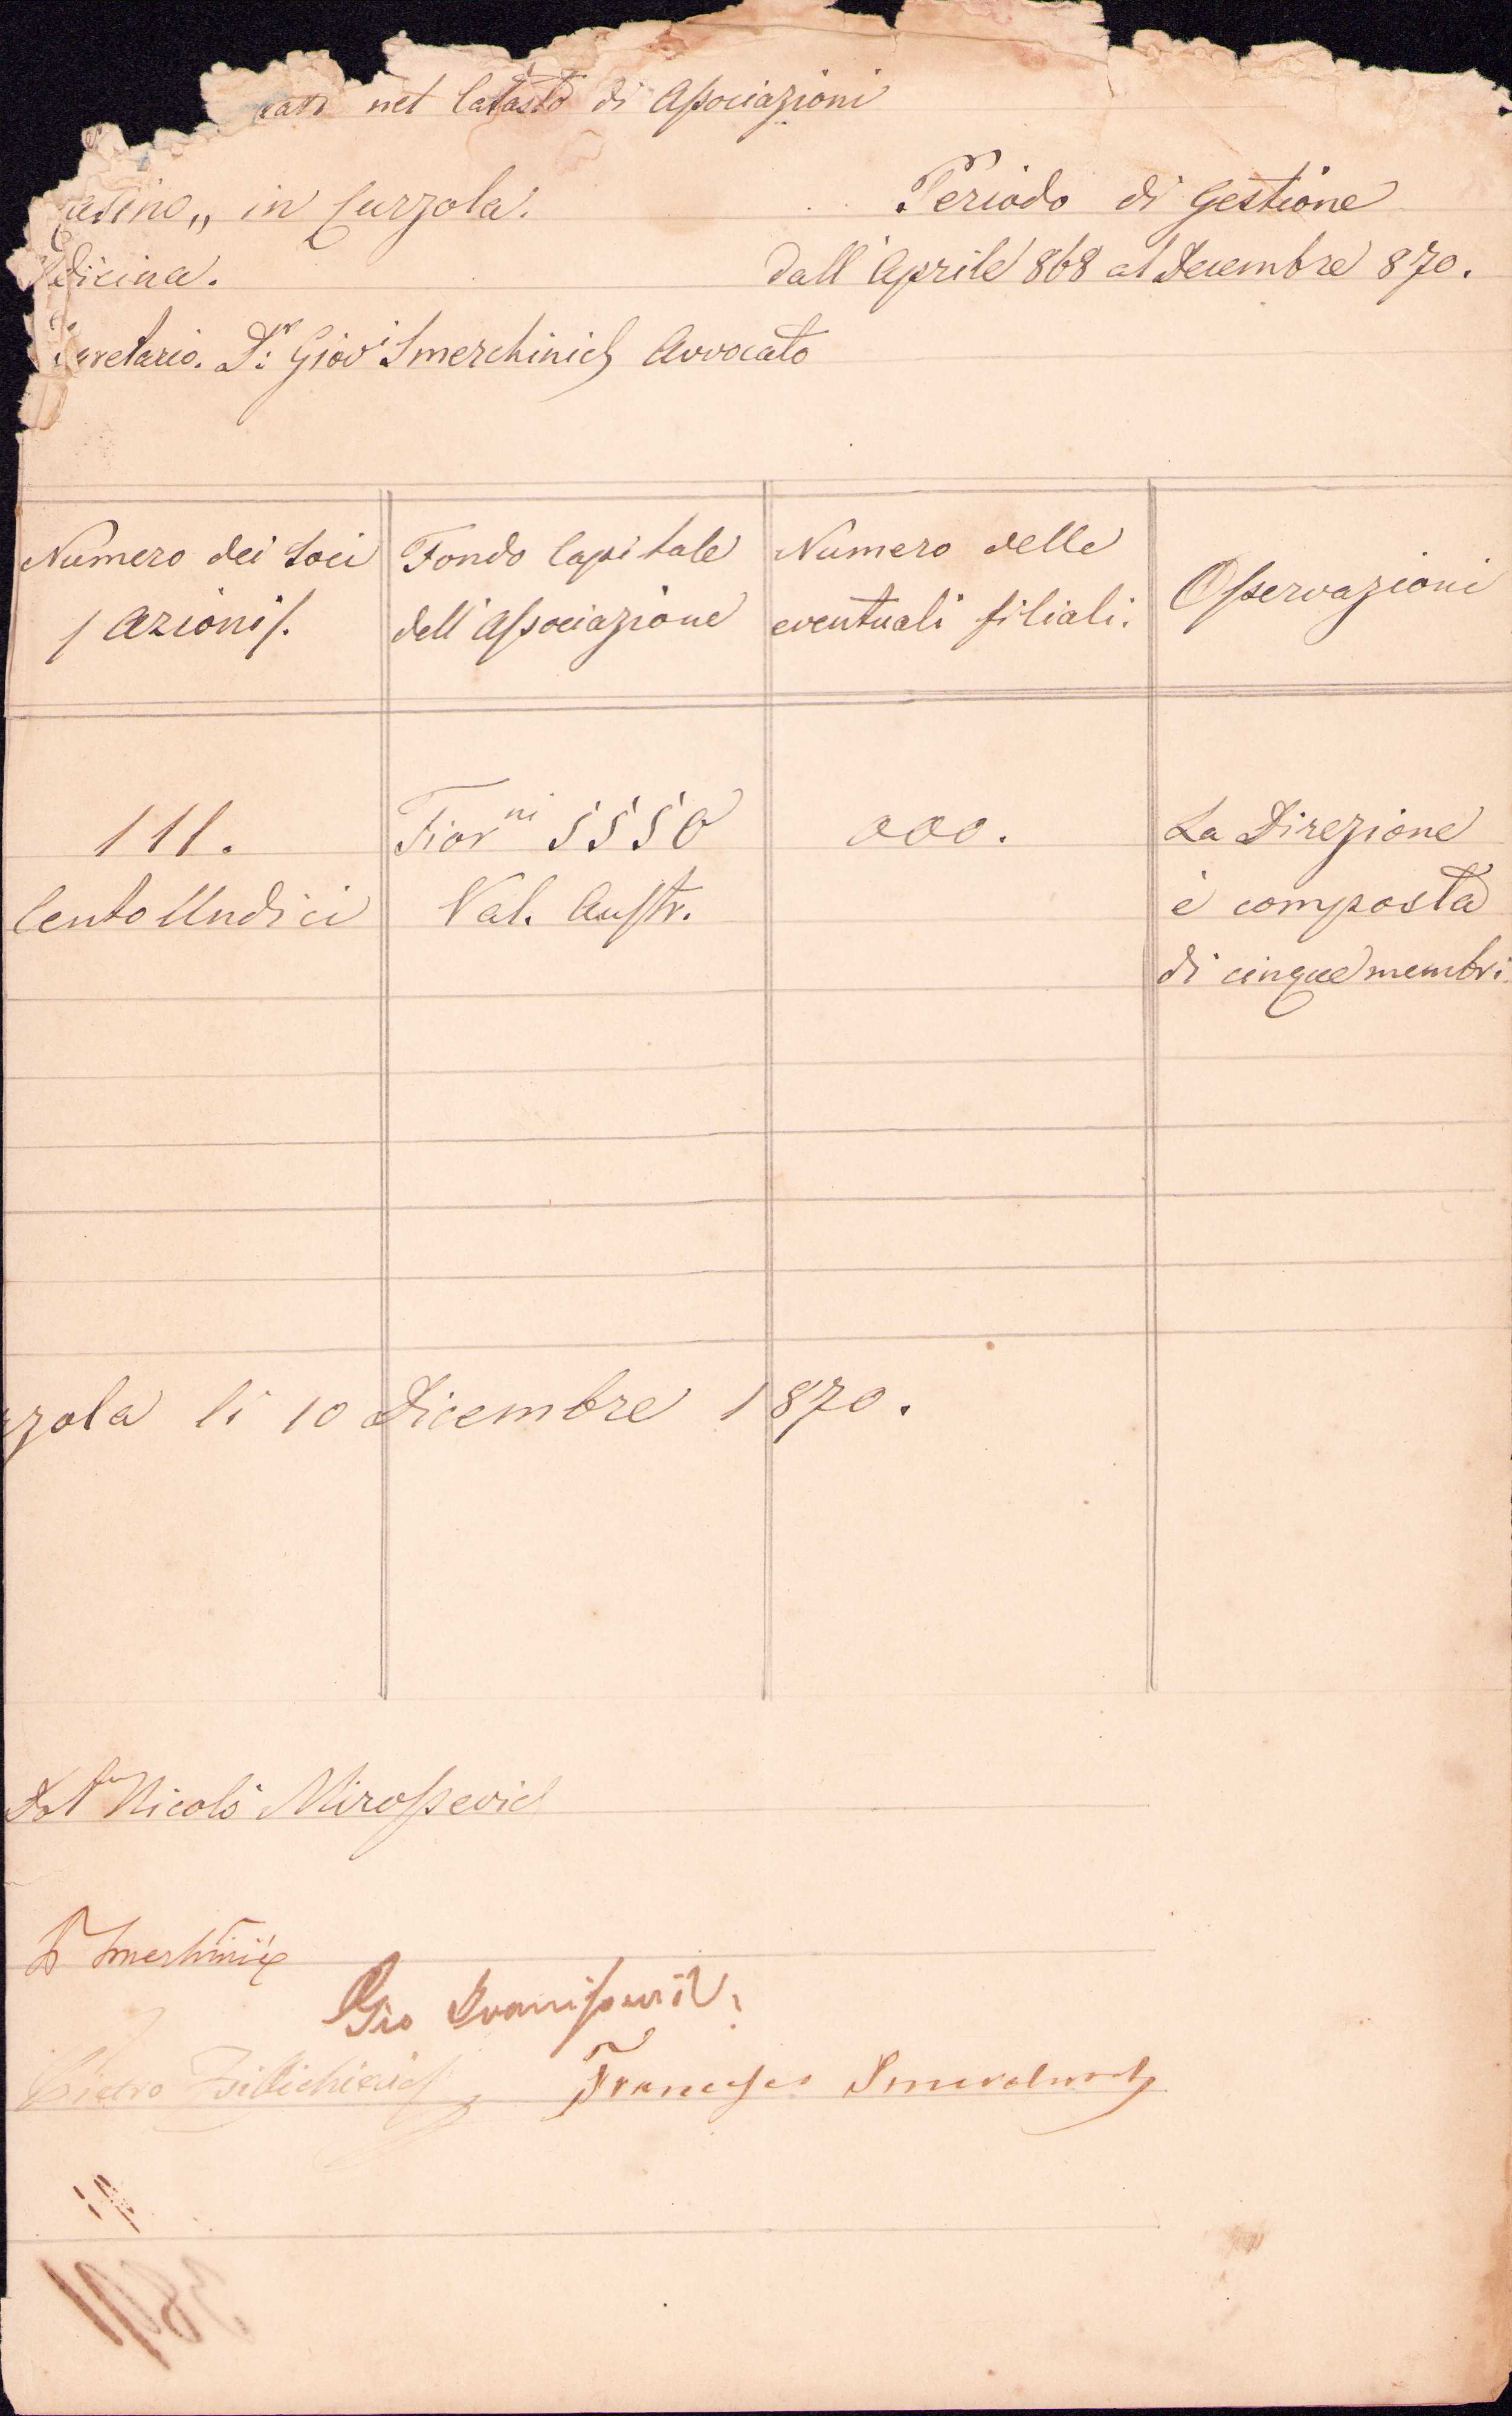 nel Catasto di Associazioni
Casino„ in Curzola.
Periodo di Gestione
dicina.
dall'Aprile 868 al Decembre 870.
Secretario. Dr: Giovi Smerchinich Avvocato
Numero dei Soci
/ Azionis/.
Fondo Capitale
dell'Associazione
Numero delle
eventuali filiali.
Osservazioni
111.
Cento Undici
Fiorni 5550
Val. Austr.
000.
La Direzione
è composta
di cinque membri
zola li 10 Dicembre 1870.
Dotr Nicolò Mirossevich
Dr Smerchinich
Gio Ivanisevich
Pietro
Francesco